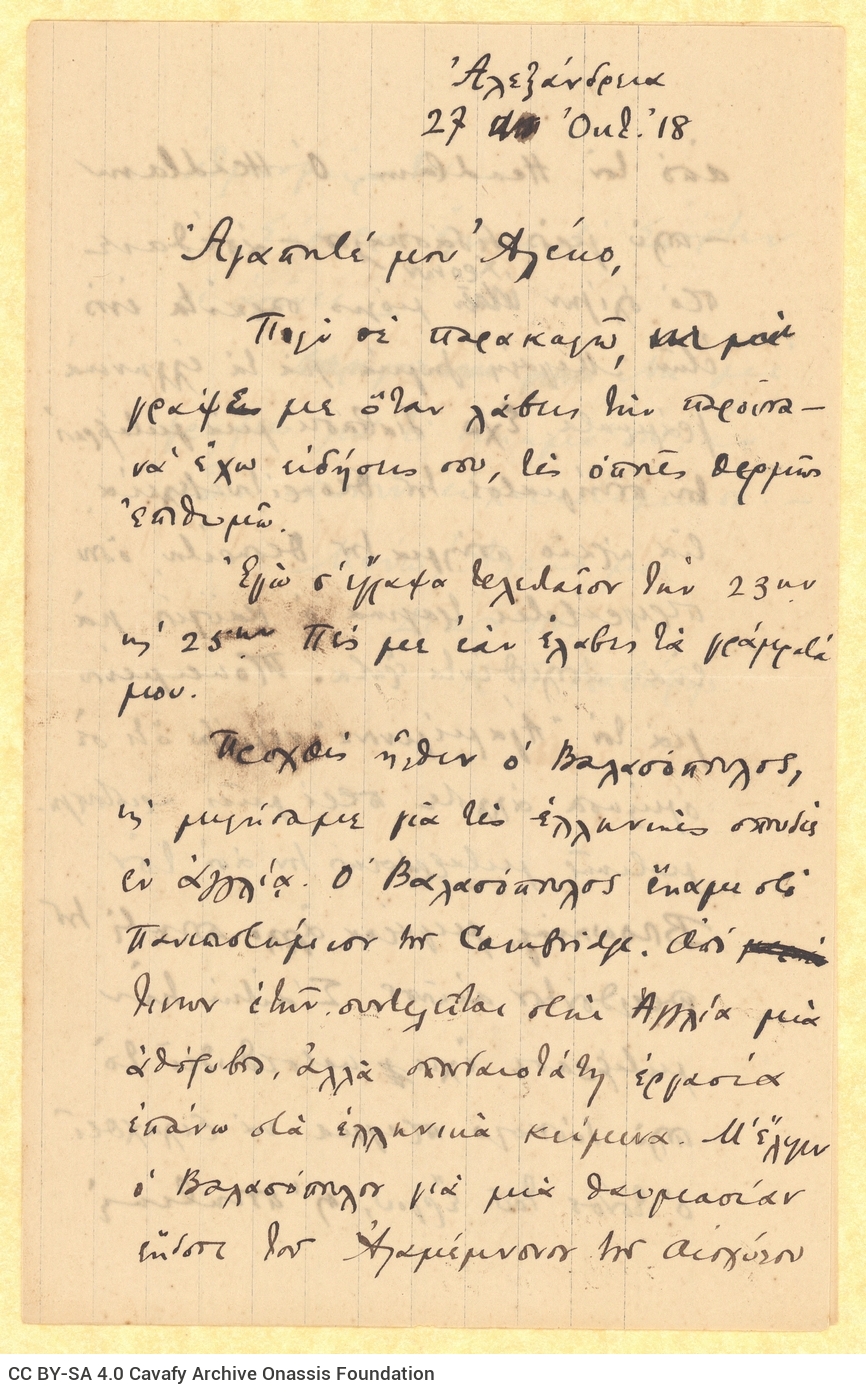 Ἀλεξάνδρεια
27 Ὀκτ. '18
Ἀγαπητέ μου Ἀλέκο,
Πολὺ σὲ παρακαλῶ,
γράψε με ὅταν λάβεις τὴν παροῦσα —
νὰ ἔχω εἰδήσεις σου, τὲς ὁποῖες θερμῶς
ἐπιθυμῶ.
Ἐγὼ σ' ἔγραψα τελευταῖον τὴν 23ην
κ' 25ην. Πές με ἐὰν ἔλαβες τὰ γράμματά
μου.
Προχθὲς ἦλθεν ὁ Βαλασσόπουλος,
κ' μιλήσαμε γιὰ τὲς ἑλληνικὲς σπουδὲς
ἐν Ἀγγλίᾳ. Ὁ Βαλασσόπουλος ἔκαμε στὸ
Πανεπιστήμιον τοῦ Cambridge. Ἀπὸ
τινων ἐτῶν συντελεῖται στὴν Ἀγγλία μιὰ
ἀθόρυβο, ἀλλὰ σπουδαιοτάτη ἐργασία
ἐπάνω στὰ ἑλληνικὰ κείμενα. Μ' ἔλεγεν
ὁ Βαλασσόπουλος γιὰ μιὰ θαυμασίαν
ἔκδοσι τοῦ Ἀγαμέμνονος τοῦ Αἰσχύλου
CC BY-SA 4.0 Cavafy Archive Onassis Foundation